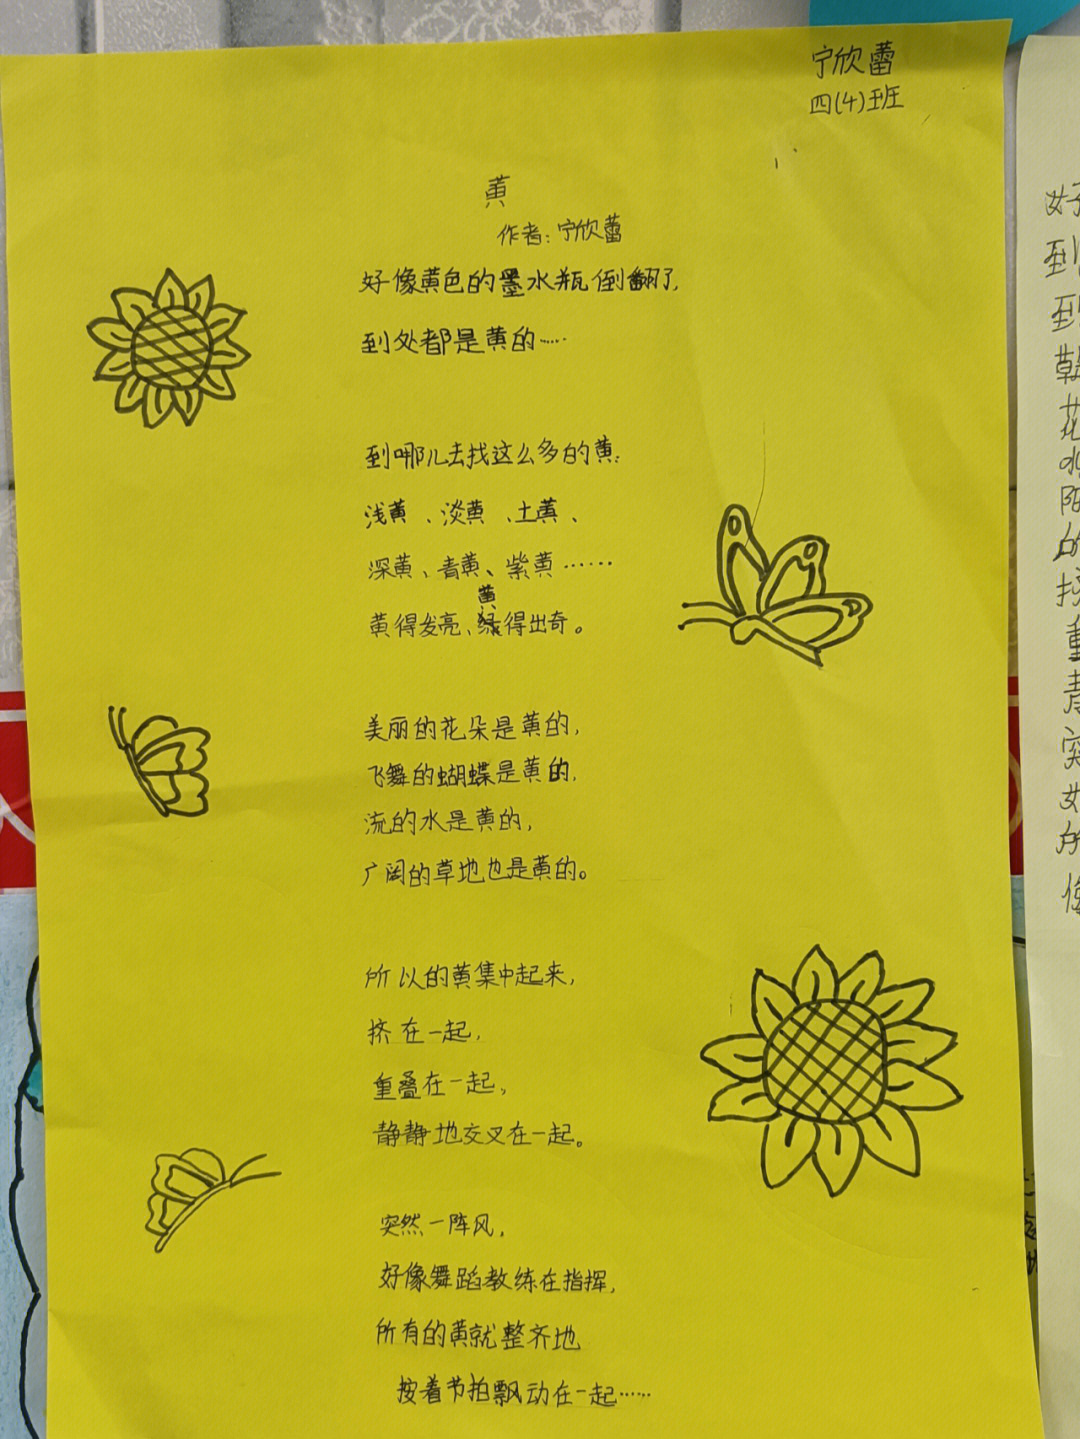 宁欣蕾
四(4)班
黄
作者:宁欣蕾
好像黄色的墨水瓶倒翻了,
到处都是黄的……
到哪儿去找这么多的黄:
浅黄、淡黄、土黄、
深黄、青黄、紫黄……
黄得发亮、黄得出奇。
美丽的花朵是黄的,
飞舞的蝴蝶是黄的,
流的水是黄的,
广阔的草地也是黄的。
所以的黄集中起来,
挤在一起,
重叠在一起,
静静地交叉在一起。
突然一阵风,
好像舞蹈教练在指挥,
所有的黄就整齐地
按着节拍飘动在一起……
好
到
到
草
花
水
陌
的
挤
重
青
突
女
所